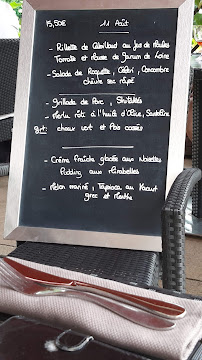 15,50€ 11 Août
- Rillette de Cabillaud au jus de Moules
Tomate et Mousse de Jaune de Loire
- Salade de Roquette, Céleri, Concombre
chèvre sec râpé
- Grillade de Porc, Shiitakés
- Merlu rôti à l'huile d'Olive, Sardeline
chou vert et Pois cassés
- Crème fraîche glacée aux Noisettes
Pudding aux Mirabelles
- Melon mariné, Tapioca au Yaourt
grec et Menthe